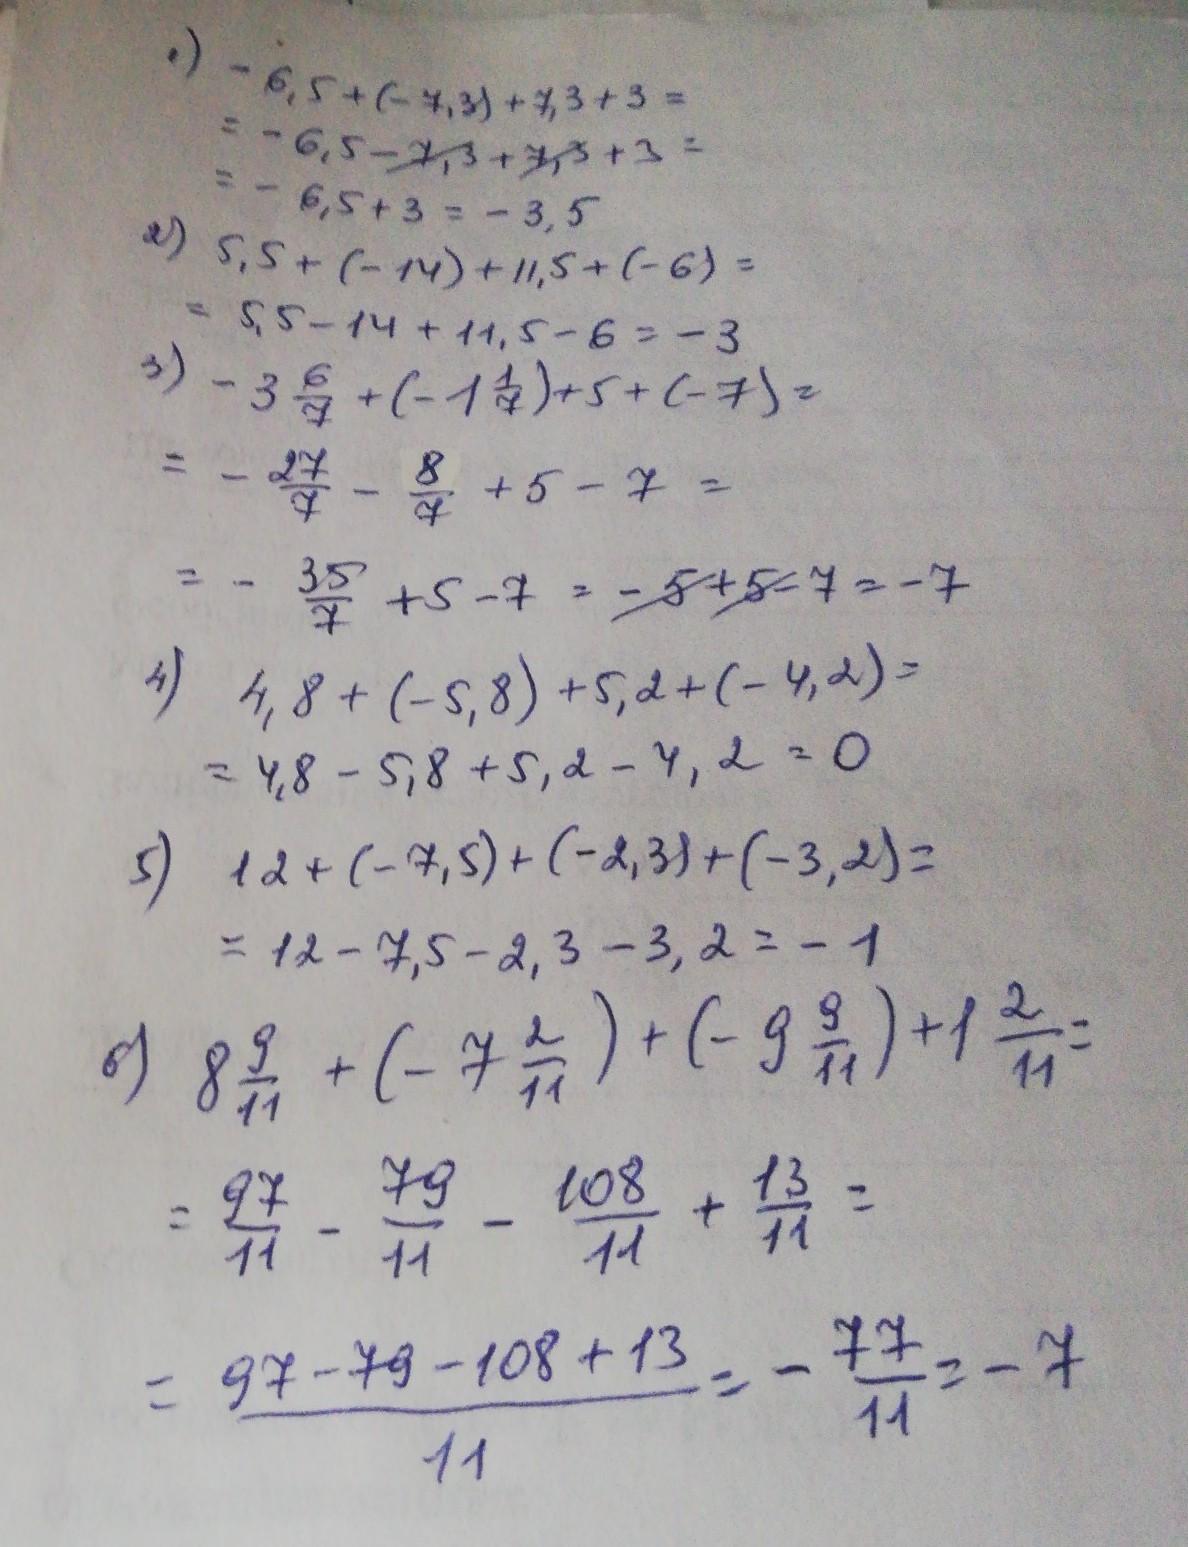 1) - 6,5 + (- 7,3) + 7,3 + 3 =
= - 6,5 - 7,3 + 7,3 + 3 =
= - 6,5 + 3 = - 3,5
2) 5,5 + (- 14) + 11,5 + (- 6) =
= 5,5 - 14 + 11,5 - 6 = - 3
3) - 3 6/7 + (- 1 1/7) + 5 + (- 7) =
= - 27/7 - 8/7 + 5 - 7 =
= - 35/7 + 5 - 7 = - 5 + 5 - 7 = - 7
4) 4,8 + (- 5,8) + 5,2 + (- 4,2) =
= 4,8 - 5,8 + 5,2 - 4,2 = 0
5) 12 + (- 7,5) + (- 2,3) + (- 3,2) =
= 12 - 7,5 - 2,3 - 3,2 = - 1
6) 8 9/11 + (- 7 2/11) + (- 9 9/11) + 1 2/11 =
= 97/11 - 79/11 - 108/11 + 13/11 =
= 97 - 79 - 108 + 13 / 11 = - 77/11 = - 7